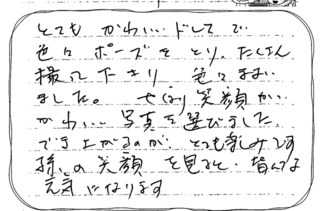 とても かわいいドレスで
色々 ポーズを とり、たくさん
撮って下さり
ました。 やはり 笑顔が
かわいい 写真を選びました
でき上がるのが とても楽しみです
孫の 笑顔 を見ると 皆んな
元気になります